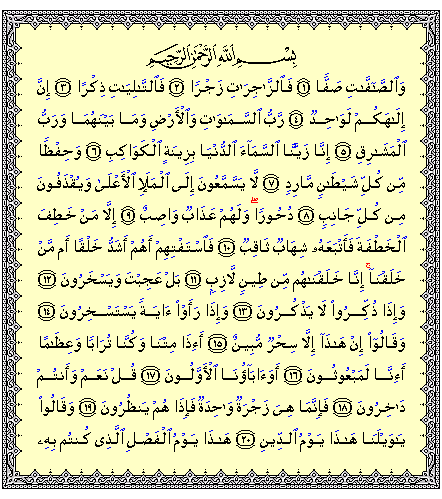 بِسْمِ ٱللَّهِ ٱلرَّحْمَٰنِ ٱلرَّحِيمِ
وَٱلصَّٰٓفَّٰتِ صَفًّا ١ فَٱلزَّٰجِرَٰتِ زَجْرًا ٢ فَٱلتَّٰلِيَٰتِ ذِكْرًا ٣ إِنَّ
إِلَٰهَكُمْ لَوَٰحِدٌ ٤ رَّبُّ ٱلسَّمَٰوَٰتِ وَٱلْأَرْضِ وَمَا بَيْنَهُمَا وَرَبُّ
ٱلْمَشَٰرِقِ ٥ إِنَّا زَيَّنَّا ٱلسَّمَآءَ ٱلدُّنْيَا بِزِينَةٍ ٱلْكَوَاكِبِ ٦ وَحِفْظًا
مِّن كُلِّ شَيْطَٰنٍ مَّارِدٍ ٧ لَّا يَسَّمَّعُونَ إِلَى ٱلْمَلَإِ ٱلْأَعْلَىٰ وَيُقْذَفُونَ
مِن كُلِّ جَانِبٍ ٨ دُحُورًا ۖ وَلَهُمْ عَذَابٌ وَاصِبٌ ٩ إِلَّا مَنْ خَطِفَ
ٱلْخَطْفَةَ فَأَتْبَعَهُۥ شِهَابٌ ثَاقِبٌ ١٠ فَٱسْتَفْتِهِمْ أَهُمْ أَشَدُّ خَلْقًا أَم مَّنْ
خَلَقْنَآ ۚ إِنَّا خَلَقْنَٰهُم مِّن طِينٍ لَّازِبٍۭ ١١ بَلْ عَجِبْتَ وَيَسْخَرُونَ ١٢
وَإِذَا ذُكِّرُوا۟ لَا يَذْكُرُونَ ١٣ وَإِذَا رَأَوْا۟ ءَايَةً يَسْتَسْخِرُونَ ١٤
وَقَالُوٓا۟ إِنْ هَٰذَآ إِلَّا سِحْرٌ مُّبِينٌ ١٥ أَءِذَا مِتْنَا وَكُنَّا تُرَابًا وَعِظَٰمًا
أَءِنَّا لَمَبْعُوثُونَ ١٦ أَوَءَابَآؤُنَا ٱلْأَوَّلُونَ ١٧ قُلْ نَعَمْ وَأَنتُمْ
دَٰخِرُونَ ١٨ فَإِنَّمَا هِىَ زَجْرَةٌ وَٰحِدَةٌ فَإِذَا هُمْ يَنظُرُونَ ١٩ وَقَالُوا۟
يَٰوَيْلَنَا هَٰذَا يَوْمُ ٱلدِّينِ ٢٠ هَٰذَا يَوْمُ ٱلْفَصْلِ ٱلَّذِى كُنتُم بِهِۦ